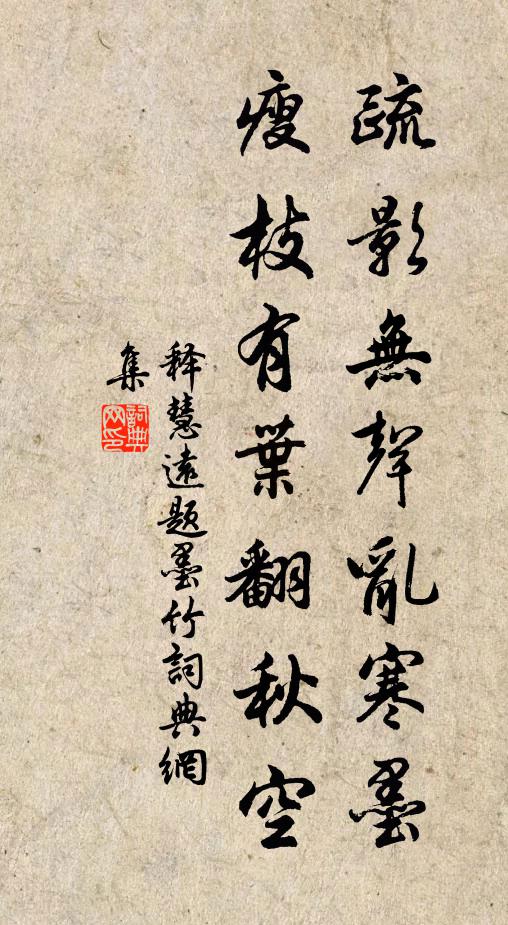 疏影無聲亂寒墨
瘦枝有葉翻秋空
释慧遠題墨竹詞典網
集
詞典
网印